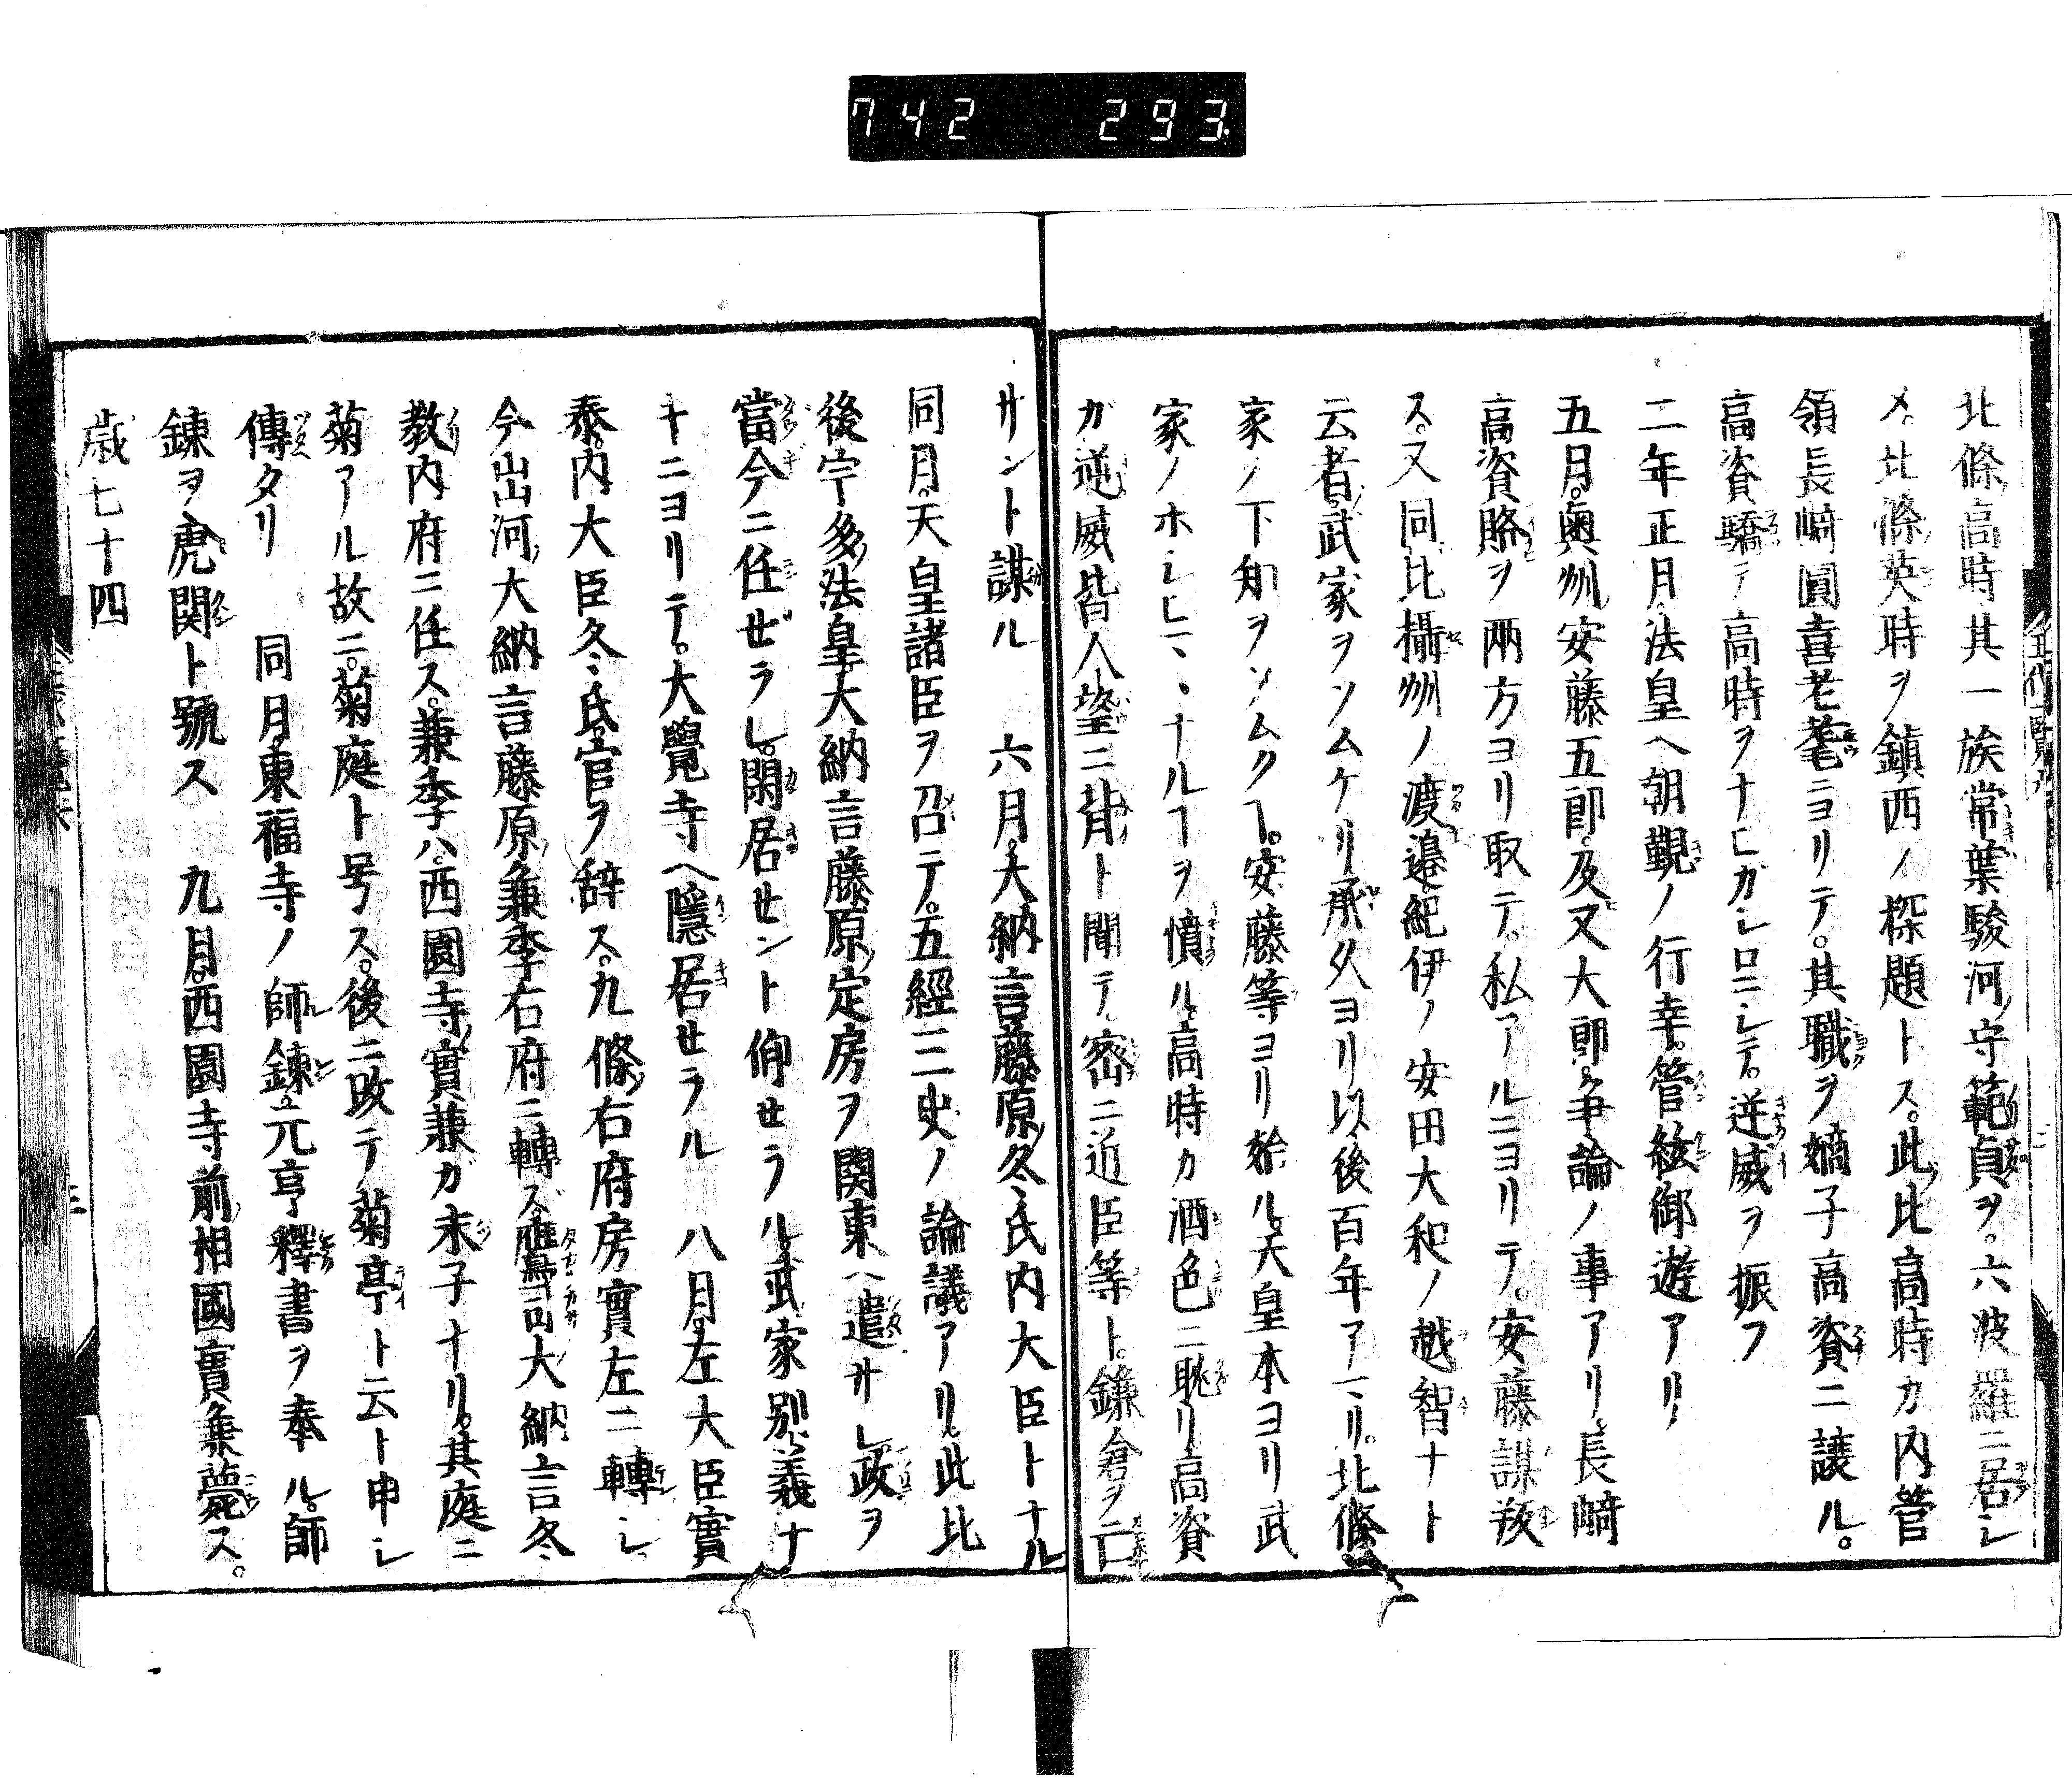 742 293
北條高時其一族常葉駿河守範貞ヲ。六波羅ニ居シ
メ。北條英時ヲ鎮西ノ探題トス。此比高時カ内管
領長﨑圓喜老耄ニヨリテ。其職ヲ嫡子高資ニ譲ル。
高資驕テ高時ヲナヒガシロニシテ。逆威ヲ振フ
二年正月。法皇ヘ朝覲ノ行幸。管絃御遊アリ
五月。奥州安藤五郎。及又大郎争論ノ事アリ。長﨑
高資賂ヲ兩方ヨリ取テ。私アルニヨリテ。安藤謀叛
ス。又同比攝州ノ渡邉。紀伊ノ安田大和ノ越智ナト
云者。武家ヲソムケリ。承久ヨリ以後百年アマリ。北條
家ノ下知ヲソムクヿ。安藤等ヨリ始ル。天皇本ヨリ武
家ノホシヒマヽナルヿヲ憤ル。高時カ酒色ニ耽リ高資
ガ逆威皆人望ニ背ト聞テ。密ニ近臣等ト。鎌倉ヲ亡
サント謀ル 六月。大納言藤原冬氏内大臣トナル
同月。天皇諸臣ヲ召テ。五經三史ノ論議アリ。此比
後宇多法皇。大納言藤原定房ヲ関東ヘ遣サレ政ヲ
當今ニ任ゼラレ。閑居セント仰セラル。武家別義ナ
キニヨリテ。大覺寺ヘ隱居セラル 八月。左大臣實
泰。内大臣冬氏。官ヲ辞ス。九條右府房實左ニ轉シ。
今出河大納言藤原兼季右府ニ轉ズ。鷹司大納言冬
教内府ニ任ス。兼季ハ。西園寺實兼ガ末子ナリ。其庭ニ
菊アル故ニ。菊庭ト号ス。後ニ改テ菊亭ト云ト申シ
傳タリ 同月。東福寺ノ師錬。元亨釋書ヲ奉ル。師
錬ヲ虎関ト號ス 九月。西園寺前相國實兼薨ス。
歳七十四